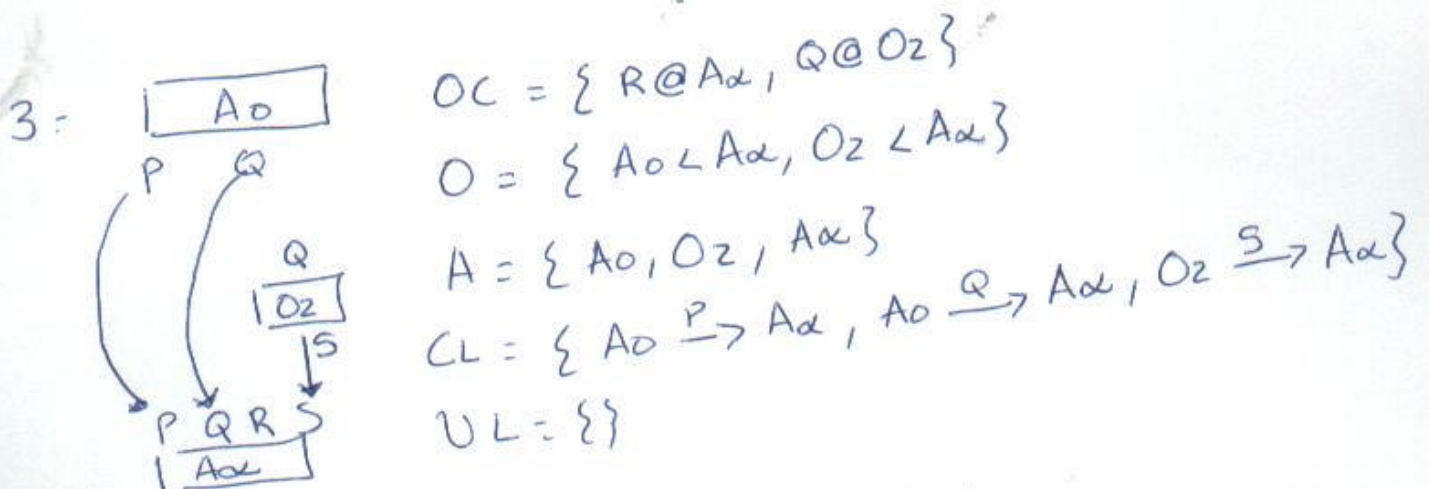 3:
A0
P Q
Q
O2
S
P Q R S
Aα
OC = { R@Aα, Q@O2}
O = { A0 < Aα, O2 < Aα}
A = { A0, O2, Aα}
CL = { A0 P→ Aα, A0 Q→ Aα, O2 S→ Aα}
UL = {}